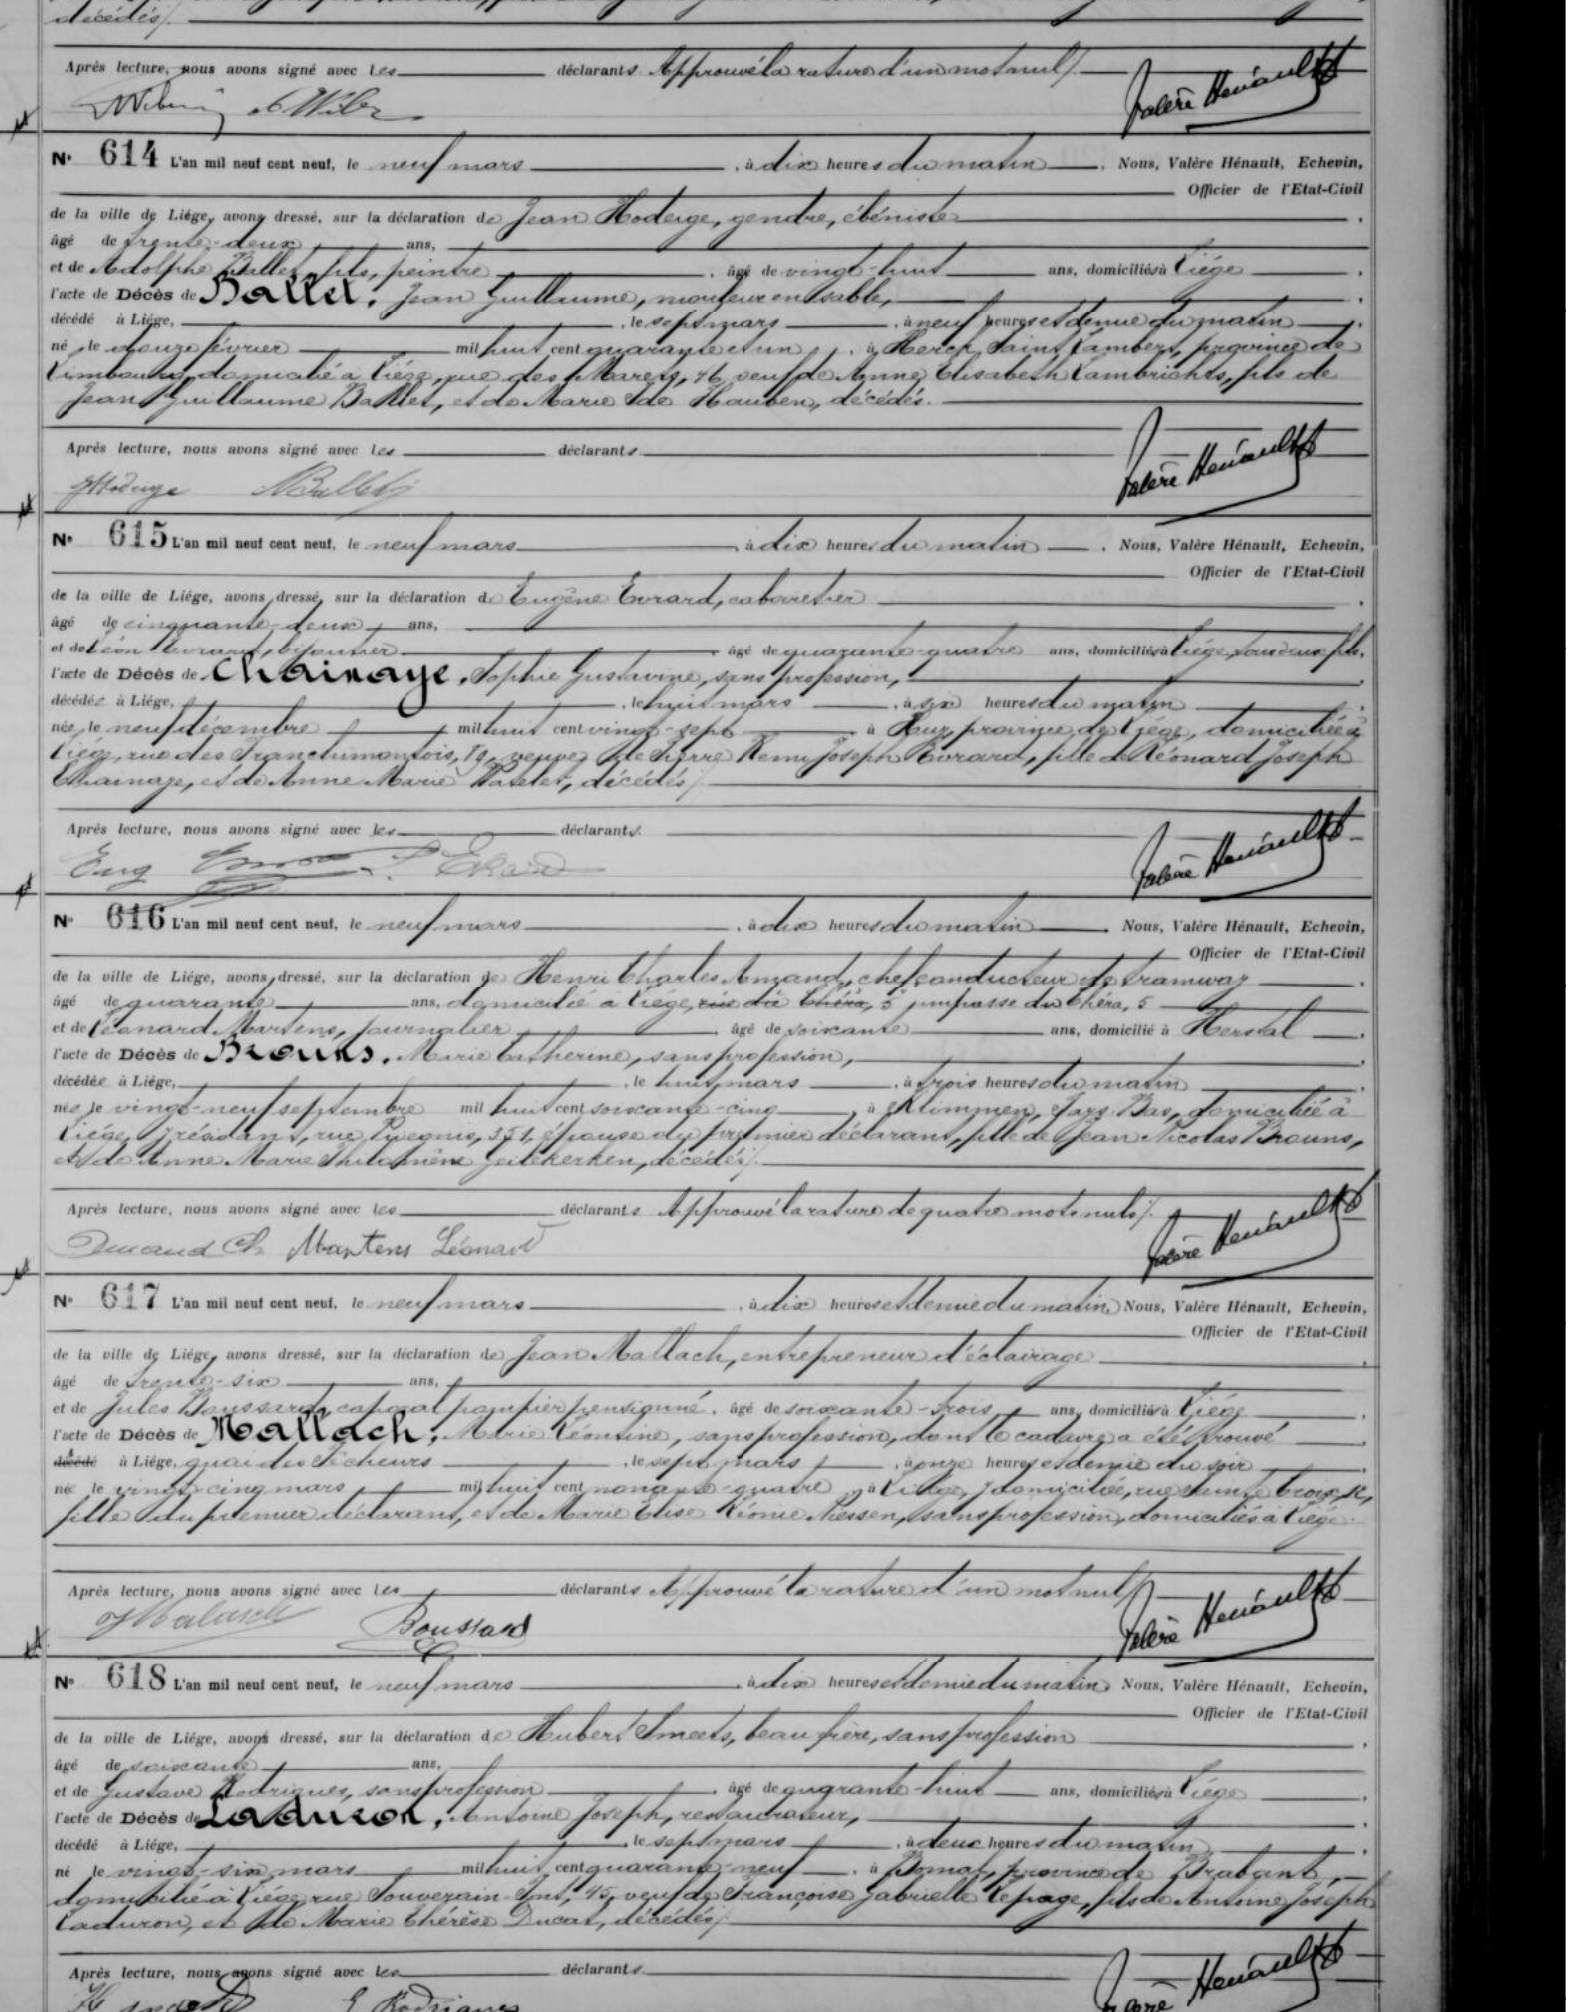 décédés/.
Après lecture, nous avons signé avec les déclarants Approuvé la rature d'un mot nul/.
Valère Hénault
N° 614 L'an mil neuf cent neuf, le neuf mars, à dix heures du matin. Nous, Valère Hénault, Echevin,
Officier de l'Etat-Civil
de la ville de Liége, avons dressé, sur la déclaration de Jean Hoderge, gendre, ébéniste
âgé de trente-deux ans,
et de Adolphe Ballet, fils, peintre, âgé de vingt-huit ans, domiciliés à Liége.
l'acte de Décès de Ballet, Jean Guillaume, mouleur en sable,
décédé à Liége, le sept mars, à neuf heures et demie du matin.
né le douze février mil huit cent quarante et un, à Herck Saint Lambert, province de
Limbourg, domicilié à Liége, rue des Marets, 46, veuf de Anne Elisabeth Lambrichts, fils de
Jean Guillaume Ballet, et de Marie Ide Hauben, décédés.
Après lecture, nous avons signé avec les déclarants
JHoderge ABallet
Valère Hénault
N° 615 L'an mil neuf cent neuf, le neuf mars, à dix heures du matin. Nous, Valère Hénault, Echevin,
Officier de l'Etat-Civil
de la ville de Liége, avons dressé, sur la déclaration de Eugène Evrard, cabaretier
âgé de cinquante-deux ans,
et de Léon Evrard, bijoutier âgé de quarante-quatre ans, domiciliés à Liége, tous deux fils.
l'acte de Décès de Chainaye, Sophie Gustavine, sans profession,
décédée à Liége, le huit mars, à six heures du matin
née le neuf décembre mil huit cent vingt-sept à Huy, province de Liége, domiciliée à
Liége, rue des Franchimontois, veuve de Pierre Remi Joseph Evrard, fille de Léonard Joseph
Chainaye, et de Anne Marie décédés/.
Après lecture, nous avons signé avec les déclarants.
Eug Evrard L. Evrard
Valère Hénault
N° 616 L'an mil neuf cent neuf, le neuf mars, à dix heures du matin. Nous, Valère Hénault, Echevin,
Officier de l'Etat-Civil
de la ville de Liége, avons dressé, sur la déclaration de Henri Charles Amand, chef conducteur de tramway
âgé de quarante ans, domicilié à Liége, rue du Théra, 5 impasse du Théra, 5
et de Léonard Martens, journalier, âgé de soixante ans, domicilié à Herstal.
l'acte de Décès de Brouns, Marie Catherine, sans profession,
décédée à Liége, le huit mars, à trois heures du matin
née le vingt-neuf septembre mil huit cent soixante-cinq, à Klimmen, Pays-Bas, domiciliée à
Liége, y résidant, rue épouse du premier déclarant, fille de Jean Nicolas Brouns,
et de Anne Marie Philomène Geilekerken, décédés/.
Après lecture, nous avons signé avec les déclarants Approuvé la rature de quatre mots nuls/.
Amand Ch Martens Léonard
Valère Hénault
N° 617 L'an mil neuf cent neuf, le neuf mars, à dix heures et demie du matin, Nous, Valère Hénault, Echevin,
Officier de l'Etat-Civil
de la ville de Liége, avons dressé, sur la déclaration de Jean Mallach, entrepreneur d'éclairage
âgé de trente-six ans,
et de Jules Boussard, caporal pompier pensionné, âgé de soixante-trois ans, domiciliés à Liége.
l'acte de Décès de Mallach, Marie Léontine, sans profession, dont le cadavre a été trouvé
décédé à Liége, quai des Pêcheurs, le sept mars, à onze heures et demie du soir
née le vingt-cinq mars mil huit cent nonante-quatre, à Liége, y domiciliée, rue Sainte Croix,
fille du premier déclarant, et de Marie Elise Léonie Niessen, sans profession, domiciliés à Liége.
Après lecture, nous avons signé avec les déclarants Approuvé la rature d'un mot nul/.
JMalach Boussard
Valère Hénault
N° 618 L'an mil neuf cent neuf, le neuf mars, à dix heures et demie du matin, Nous, Valère Hénault, Echevin,
Officier de l'Etat-Civil
de la ville de Liége, avons dressé, sur la déclaration de Hubert Smeets, beau-frère, sans profession
âgé de soixante ans,
et de Gustave Rodrigues, sans profession, âgé de quarante-huit ans, domiciliés à Liége.
l'acte de Décès de Laduron, Antoine Joseph, restaurateur,
décédé à Liége, le sept mars, à deux heures du matin
né le vingt-six mars mil huit cent quarante-neuf, à Bomal, province de Brabant,
domicilié à Liége, rue Souverain-Pont, 45, veuf de Françoise Gabrielle Lepage, fils de Antoine Joseph
Laduron, et de Marie Thérèse Ducat, décédés/.
Après lecture, nous avons signé avec les déclarants
H Smeets G Rodrigues
Valère Hénault